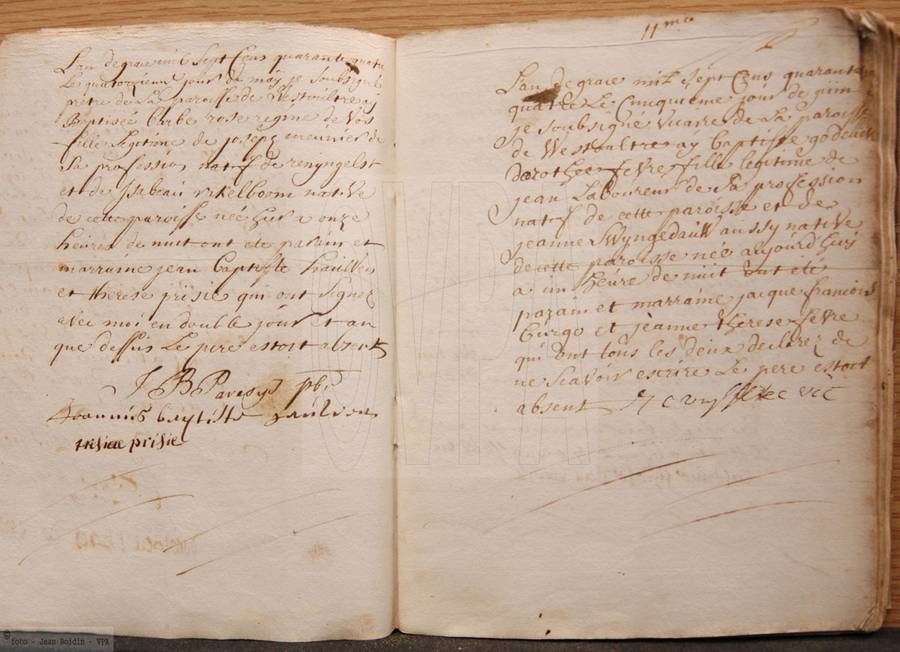 L'an de grace mil sept Cens quarante quatre
Le quatorzieme jour de may je soubsigné
prêtre de La paroisse de Westoultre ay
Baptisée Barbe rose regine de Vos
fille Legitime de joseph meunier de
sa profession natif de renyngelst
et de natiue
de cette paroisse née hier a onze
heures de nuit ont été parain et
marraine jean Baptiste
et therese prisie qui ont signez
avec moi en double jour et an
que dessus Le pere estoit absent
J B pbr
Joannis baptiste
prisie
11me
L'an de grace mil sept Cens quarante
quatre Le Cincquieme jour de juin
je soubsigné vicaire de La paroisse
de Westoultre ay baptisée godeliev
dorothee fevre fille legitime de
jean Laboureur de sa profession
natif de cette paroisse et de
jeanne Swyngedauw aussy native
de cette paroisse née aujourdhuy
a un heure de nuit ont été
parain et marraine jacque francois
et jeanne therese fevre
qui ont tous les deux declarez de
ne scavoir escrire Le pere estoit
absent
© foto - Jean Boidin - VPA
VPA
VPA